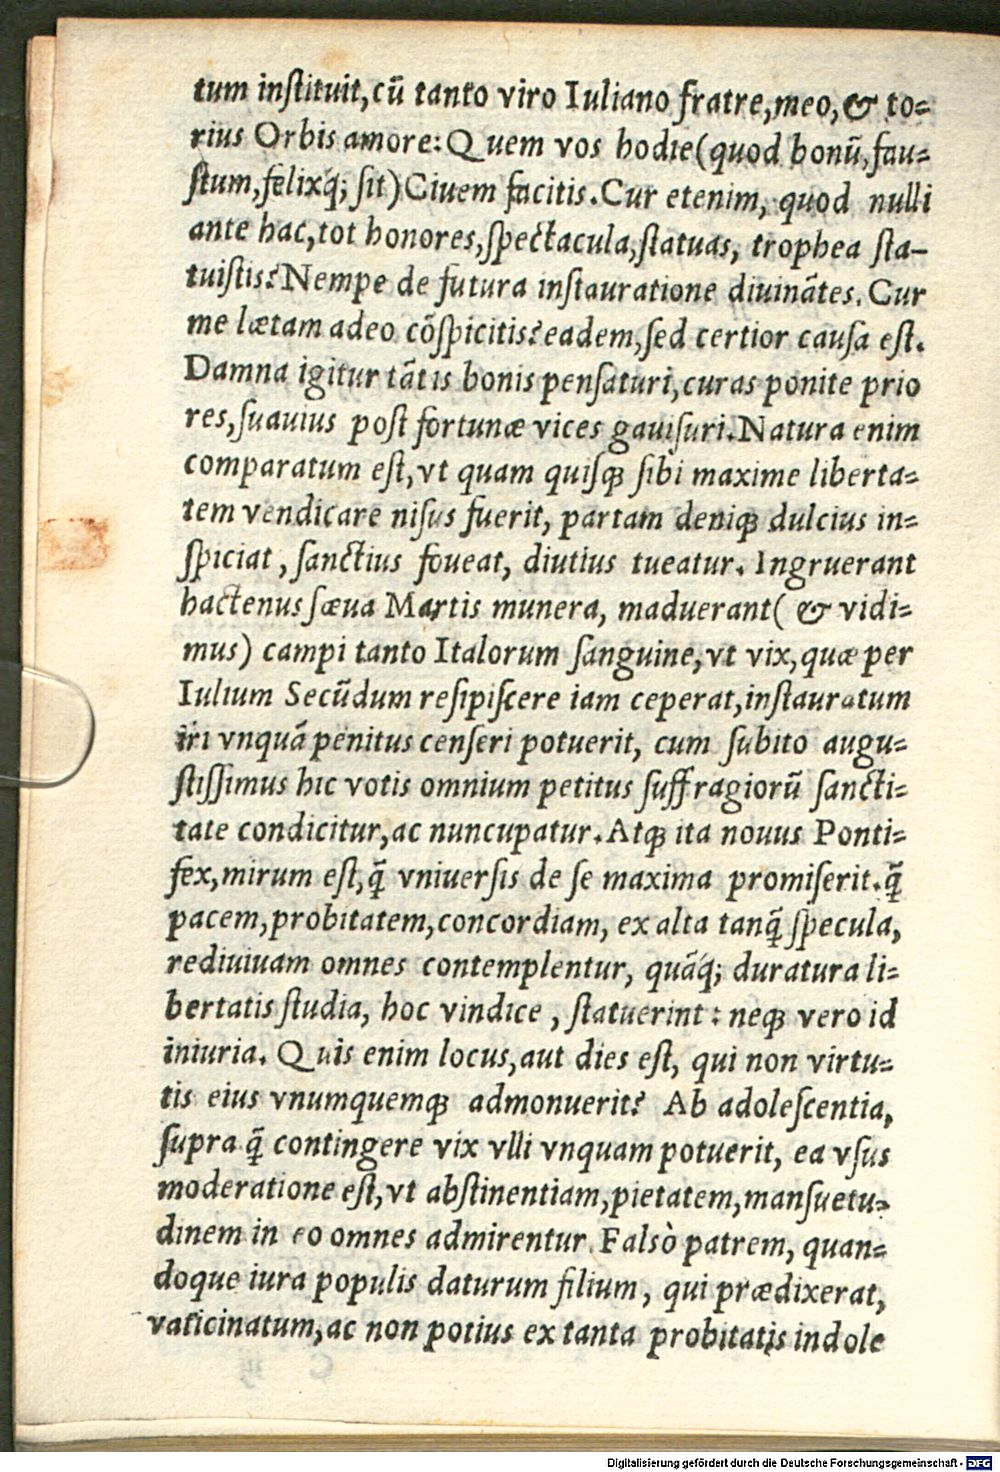 tum inſtituit,cū tanto viro Iuliano fratre,meo,& to=
rius Orbis amore: Quem vos hodie(quod bonū,fau=
ſtum,felixq́; ſit)Ciuem facitis.Cur etenim, quod nulli
ante hac,tot honores,ſpectacula,ſtatuas, trophea ſta-
tuiſtis?Nempe de futura inſtauratione diuinātes. Cur
me lætam adeo cōſpicitis?eadem,ſed certior cauſa eſt.
Damna igitur tātis bonis penſaturi,curas ponite prio
res,ſuauius poſt fortunæ vices gauiſuri.Natura enim
comparatum eſt,vt quam quiſꝗ ſibi maxime liberta=
tem vendicare niſus fuerit, partam deniꝗ dulcius in=
ſpiciat , ſanctius foueat, diutius tueatur. Ingruerant
hactenus ſæua Martis munera, maduerant( & vidi=
mus) campi tanto Italorum ſanguine,vt vix,quæ per
Iulium Secūdum reſipiſcere iam ceperat,inſtauratum
iri vnquā penitus cenſeri potuerit, cum ſubito augu=
ſtiſſimus hic votis omnium petitus ſuffragiorū ſancti=
tate condicitur,ac nuncupatur.Atꝗ ita nouus Ponti=
fex,mirum eſt,q̄ vniuerſis de ſe maxima promiſerit.q̄
pacem,probitatem,concordiam, ex alta tanq̄ ſpecula,
rediuiuam omnes contemplentur, quāq́; duratura li=
bertatis ſtudia, hoc vindice , ſtatuerint : neꝗ vero id
iniuria. Quis enim locus,aut dies eſt, qui non virtu=
tis eius vnumquemꝗ admonuerit? Ab adoleſcentia,
ſupra q̄ contingere vix vlli vnquam potuerit, ea vſus
moderatione eſt,vt abſtinentiam,pietatem,manſuetu=
dinem in eo omnes admirentur. Falsò patrem, quan=
doque iura populis daturum filium , qui prædixerat,
vaticinatum,ac non potius ex tanta probitatis indole
Digitalisierung gefördert durch die Deutsche Forschungsgemeinschaft - DFG